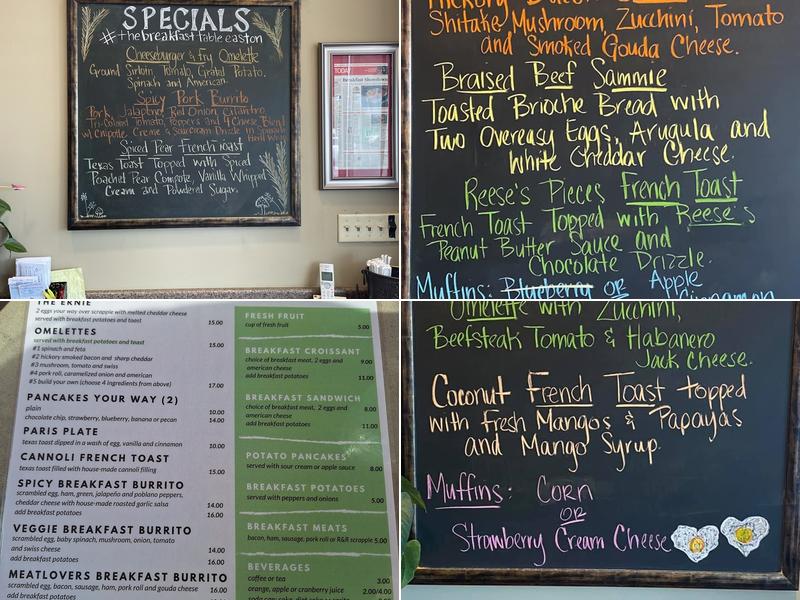 SPECIALS
#thebreakfasttableeaston
Cheeseburger & Fry Omelette
Ground Sirloin, Tomato, Grated Potato,
Spinach and American
Spicy Pork Burrito
Pork, Jalapeno, Red Onion, Cilantro,
Tri-Colored Tomato, Peppers and 4 Cheese Blend
w/ Chipotle Creme & Sour Cream Drizzle in Spinach
Spiced Pear French Toast
Texas Toast Topped with Spiced
Poached Pear Compote, Vanilla Whipped
Cream and Powdered Sugar.
TODAY
Shitake Mushroom, Zucchini, Tomato
and Smoked Gouda Cheese.
Braised Beef Sammie
Toasted Brioche Bread with
Two Overeasy Eggs, Arugula and
White Cheddar Cheese.
Reese's Pieces French Toast
French Toast Topped with Reese's
Peanut Butter Sauce and
Chocolate Drizzle.
Muffins: Blueberry or Apple
Cinnamon
THE ERNIE
2 eggs your way over scrapple with melted cheddar cheese
served with breakfast potatoes and toast 15.00
OMELETTES
served with breakfast potatoes and toast 15.00
#1 spinach and feta
#2 hickory smoked bacon and sharp cheddar
#3 mushroom, tomato and swiss
#4 pork roll, caramelized onion and american
#5 build your own (choose 4 ingredients from above) 17.00
PANCAKES YOUR WAY (2)
plain 10.00
chocolate chip, strawberry, blueberry, banana or pecan 14.00
PARIS PLATE
texas toast dipped in a wash of egg, vanilla and cinnamon 10.00
CANNOLI FRENCH TOAST
texas toast filled with house-made cannoli filling 15.00
SPICY BREAKFAST BURRITO
scrambled egg, ham, green, jalapeño and poblano peppers,
cheddar cheese with house-made roasted garlic salsa 14.00
add breakfast potatoes 16.00
VEGGIE BREAKFAST BURRITO
scrambled egg, baby spinach, mushroom, onion, tomato
and swiss cheese 14.00
add breakfast potatoes 16.00
MEATLOVERS BREAKFAST BURRITO
scrambled egg, bacon, sausage, ham, pork roll and gouda cheese 16.00
add breakfast potatoes
FRESH FRUIT
cup of fresh fruit 5.00
BREAKFAST CROISSANT
choice of breakfast meat, 2 eggs and 9.00
american cheese
add breakfast potatoes 11.00
BREAKFAST SANDWICH
choice of breakfast meat, 2 eggs and 8.00
american cheese
add breakfast potatoes 11.00
POTATO PANCAKES
served with sour cream or apple sauce 8.00
BREAKFAST POTATOES
served with peppers and onions 5.00
BREAKFAST MEATS
bacon, ham, sausage, pork roll or R&R scrapple 5.00
BEVERAGES
coffee or tea 3.00
orange, apple or cranberry juice 2.00/4.00
Omelette with Zucchini,
Beefsteak Tomato & Habanero
Jack Cheese.
Coconut French Toast topped
with Fresh Mangos & Papayas
and Mango Syrup.
Muffins: Corn
OR
Strawberry Cream Cheese